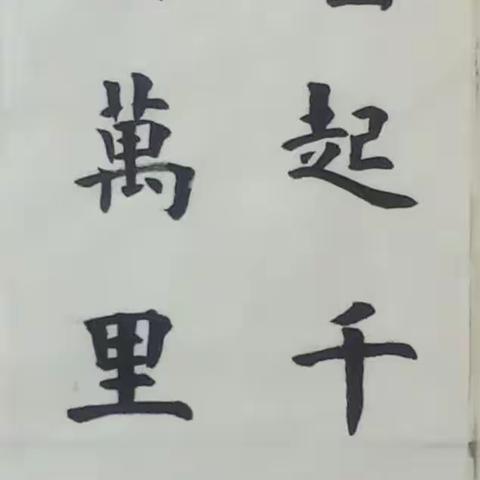 起千
萬里